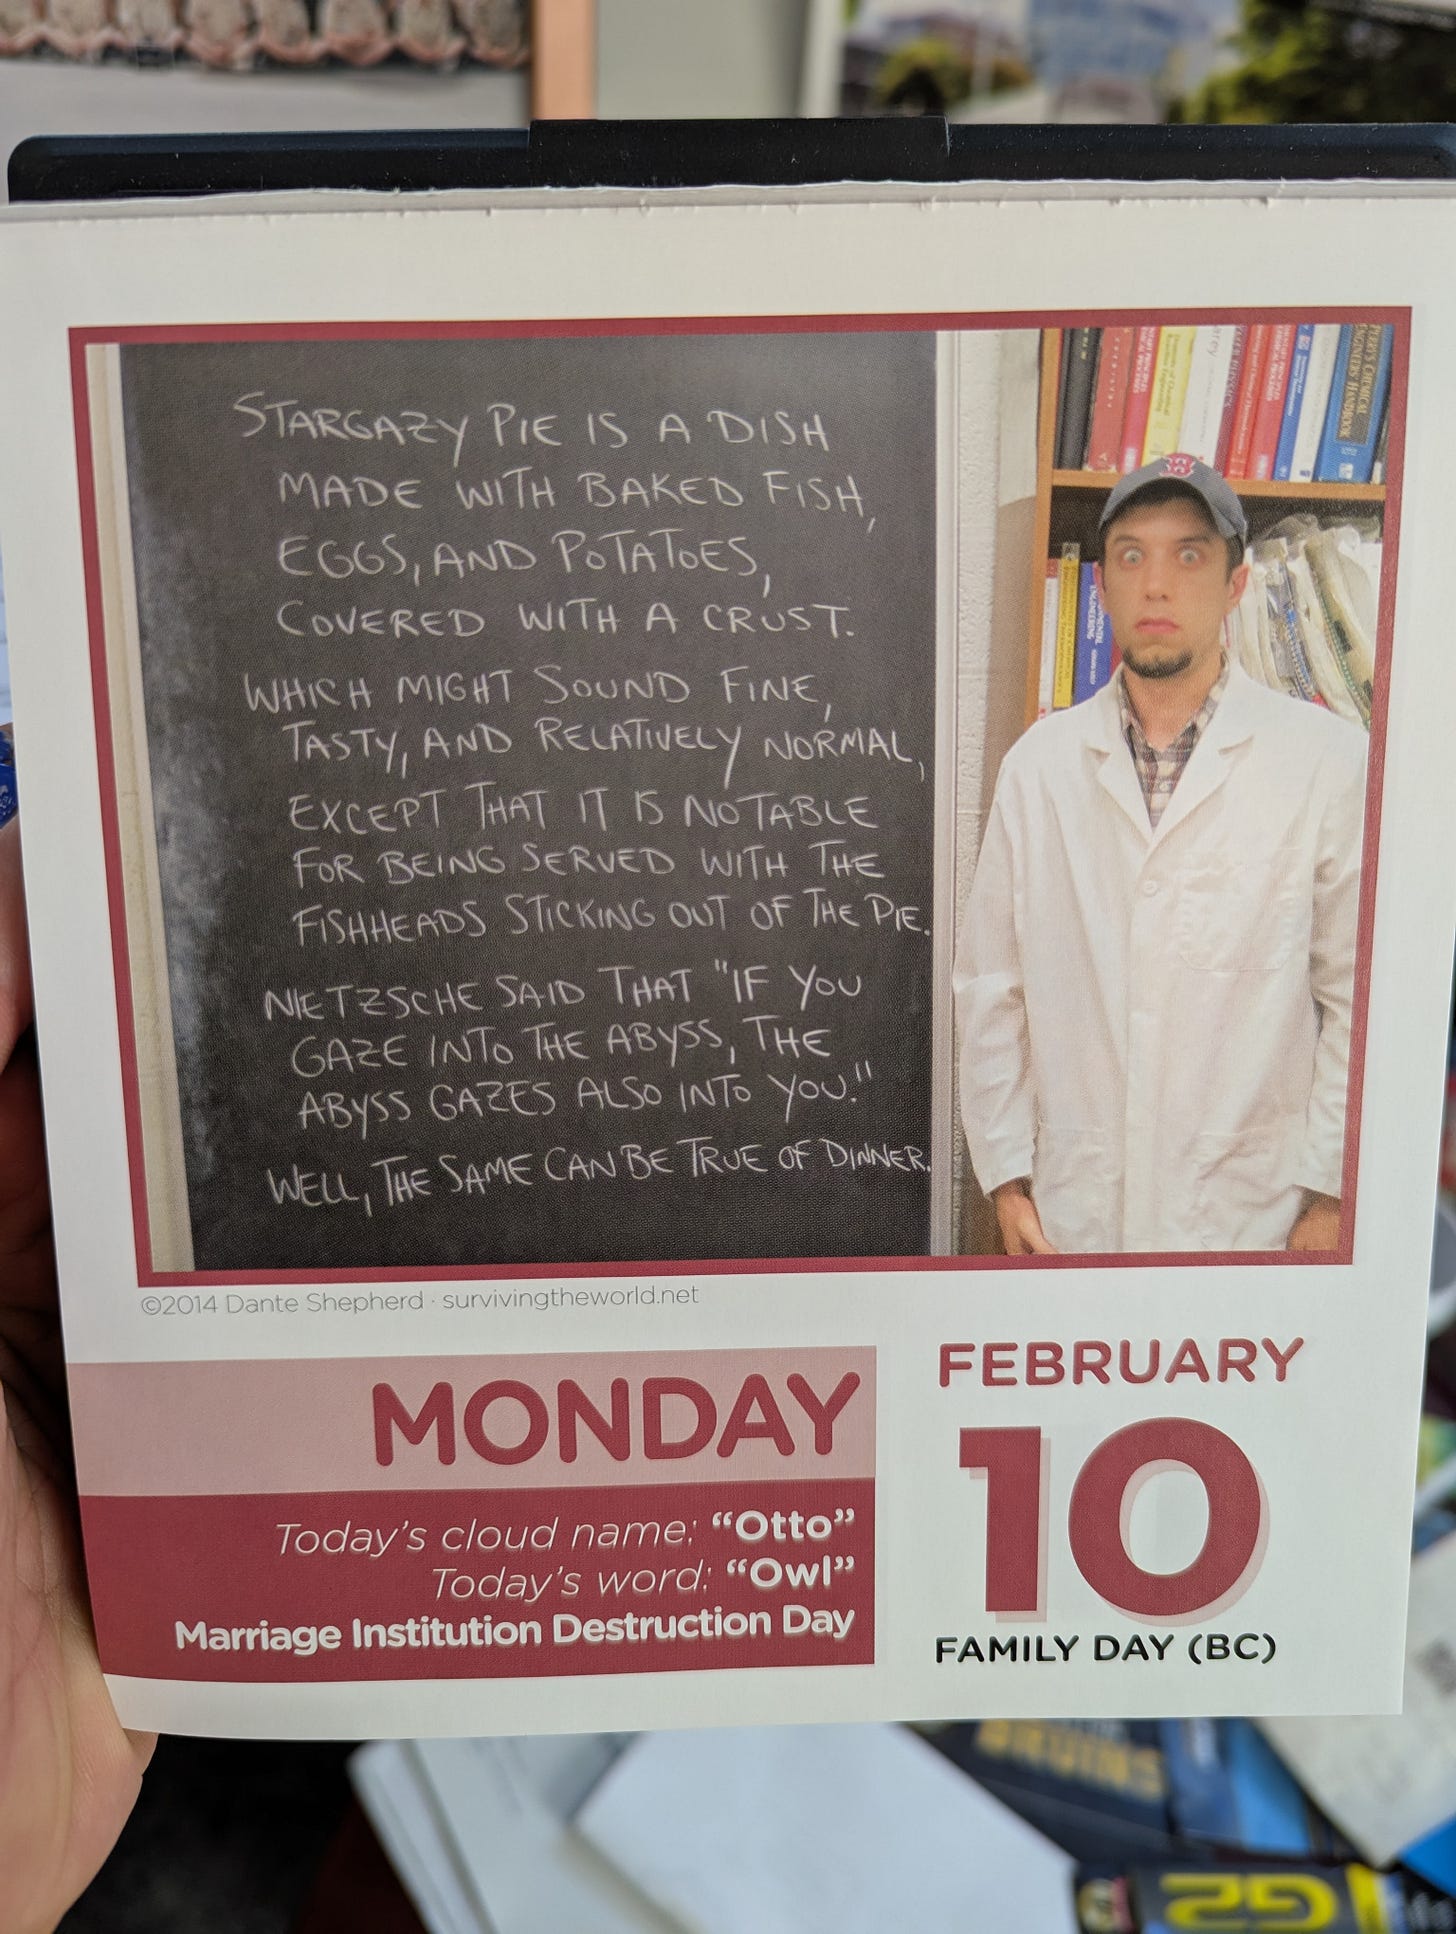 STARGAZY PIE IS A DISH
MADE WITH BAKED FISH,
EGGS, AND POTATOES,
COVERED WITH A CRUST.
WHICH MIGHT SOUND FINE,
TASTY, AND RELATIVELY NORMAL,
EXCEPT THAT IT IS NOTABLE
FOR BEING SERVED WITH THE
FISHHEADS STICKING OUT OF THE PIE.
NIETZSCHE SAID THAT "IF YOU
GAZE INTO THE ABYSS, THE
ABYSS GAZES ALSO INTO YOU."
WELL, THE SAME CAN BE TRUE OF DINNER.
PERRY'S CHEMICAL
ENGINEERS' HANDBOOK
B
©2014 Dante Shepherd · survivingtheworld.net
MONDAY
Today's cloud name: "Otto"
Today's word: "Owl"
Marriage Institution Destruction Day
FEBRUARY
10
FAMILY DAY (BC)
BRUINS
G2